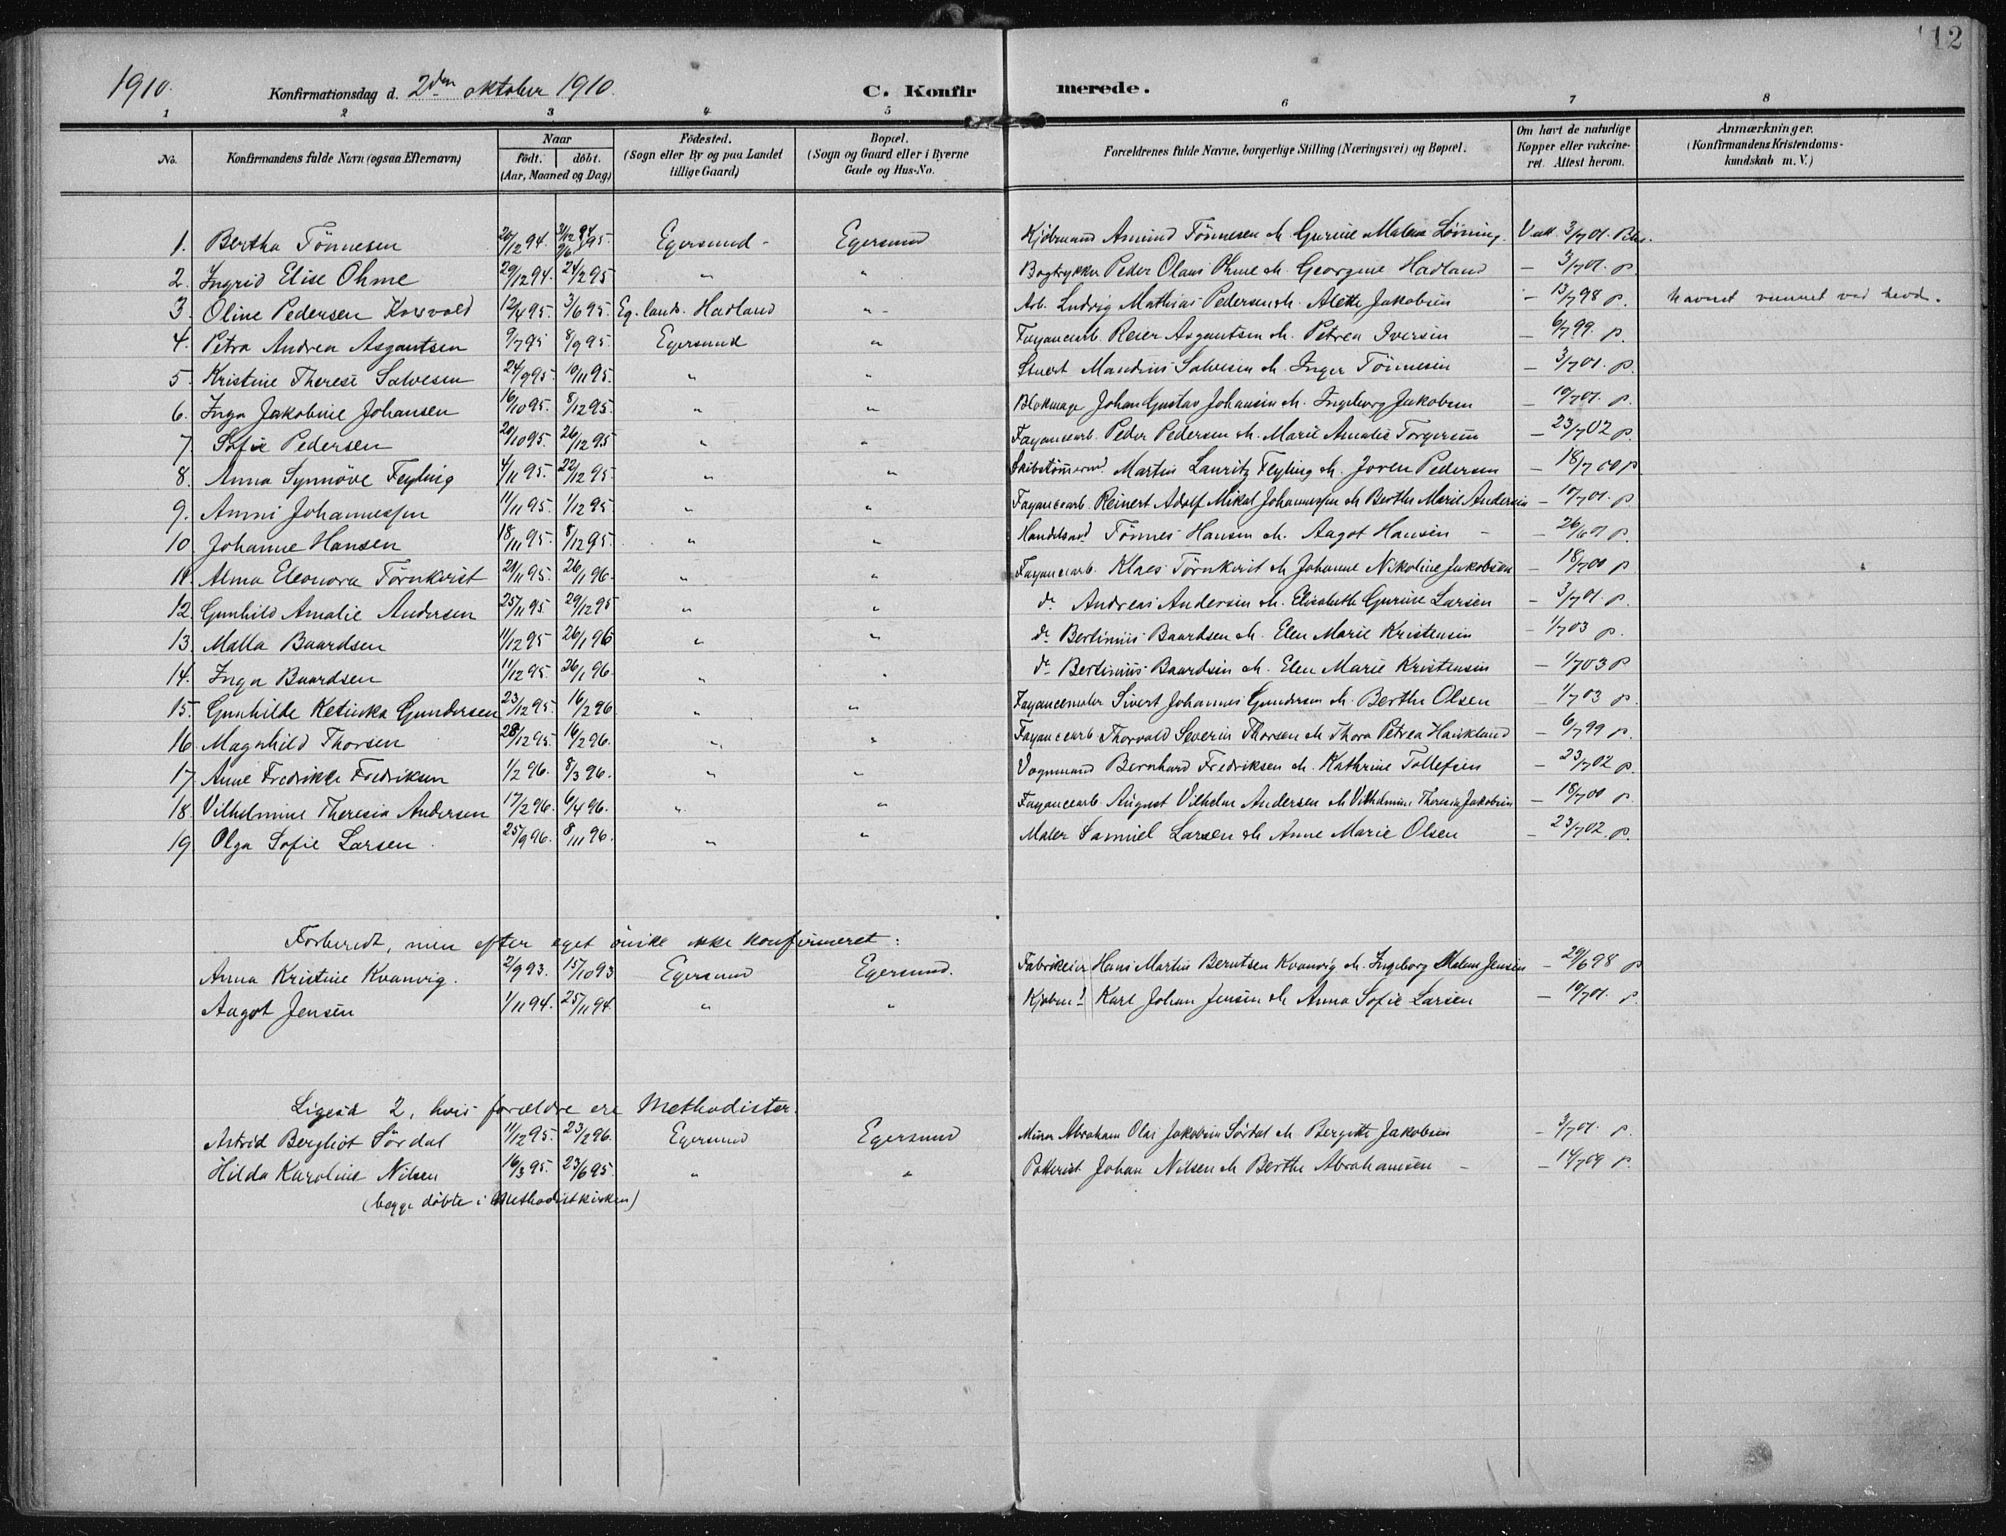 112
1910. Konfirmationsdag d. 2den oktober 1910. C. Konfirmerede.
1 2 3 4 5 6 7 8
No. Konfirmandens fulde Navn (ogsaa Efternavn) Naar født. døbt. (Aar, Maaned og Dag) Fødested. (Sogn eller By og paa Landet tillige Gaard) Bopæl. (Sogn og Gaard eller i Byerne Gade og Hus-No. Forældrenes fulde Navne, borgerlige Stilling (Næringsvei) og Bopæl. Om havt de naturlige Kopper eller vakcineret. Attest herom. Anmærkninger. (Konfirmandens Kristendomskundskab m. V.)
1. Bertha Tönnesen 20/12 94. 31/12 94 9/6 95. Egersund - Egersund Kjöbmand Amund Tönnesen & Gurine Malena Lövning. Vakc. 3/7 01.
2. Ingrid Elise Ohme 29/12 94. 24/2 95 " " Bogtrykker Peder Olaus Ohme & Georgine Hadland - 3/7 01. p.
3. Oline Pedersen Koxvold 12/4 95. 3/6 95. Eg. lands. Hadland " Arb. Ludvig Mathias Pedersen & Alette Jakobsen - 13/7 98 p. havnet vunnet ved hevd.
4. Petra Andrea Asgautsen 9/7 95 8/9 95. Egersund " Fayancearb. Reier Asgautsen & Petrea Iversen - 6/7 99. p.
5. Kristine Therese Salvesen 24/9 95. 10/11 95. " " Stuert Mandius Salvesen & Inger Tönnesen - 3/7 01. p.
6. Inga Jakobine Johansen 16/10 95. 8/12 95. " " Blokmage Johan Gustav Johansen & Ingeborg Jakobsen - 10/7 01. p.
7. Sofie Pedersen 20/10 95. 26/12 95 " " Fayancearb. Peder Pedersen & Marie Amalie Torgersen - 23/7 02 p.
8. Anna Synnöve Feyling 4/11 95. 22/12 95. " " Skibstömmerm. Martin Lauritz Feyling & Joren Pedersen - 18/7 00 p
9. Anni Johannessen 11/11 95. 1/12 95. " " Fayancearb. Reinert Adolf Mikal Johannessen & Berthe Marie Andersen - 10/7 01. p.
10. Johanne Hansen 18/11 95. 8/12 95. " " Handelsmd Tönnes Hansen & Aagot Hansen - - 26/6 01 p.
11. Alma Eleonora Törnkvist 21/11 95. 26/1 96. " " Fayancearb. Klaes Törnkvist & Johanne Nikoline Jakobsen - 18/7 00 p.
12. Gunhild Amalie Andersen 25/11 95 29/12 95 " " do Andreas Andersen & Elisabeth Gurine Larsen - 3/7 01 p.
13. Malla Baardsen 11/12 95 26/1 96 " " do Bertinius Baardsen & Elen Marie Kristensen - 1/7 03 p.
14. Inga Baardsen 11/12 95. 26/1 96. " " do Bertinius Baardsen & Elen Marie Kristensen - 1/7 03 p
15. Gunhilde Ketinka Gundersen 23/12 95. 16/2 96 " " Fayancemaler Sivert Johannes Gundersen & Berthe Olsen - 1/7 03 p.
16. Magnhild Thorsen 28/12 95. 16/2 96. " " Fayancearb Thorvald Severin Thorsen & Thora Petrea Haukland - 6/7 99 p.
17. Anne Fredrikke Fredriksen 1/2 96. 8/3 96. " " Vognmand Bernhard Fredriksen & Kathrine Tollefsen - 23/7 02 p.
18. Vilhelmine Theresia Andersen 17/2 96. 6/4 96. " " Fayancearb. August Vilhelm Andersen & Vilhelmine Theresia Jakobsen - 18/7 00 p.
19. Olga Sofie Larsen. 25/9 96. 8/11 96. " " Maler Samuel Larsen & Anne Marie Olsen - 23/7 02. p.
Forberedt, men efter eget önske ikke konfirmeret:
Anna Kristine Kvanvig. 2/9 93. 15/10 93 Egersund Egersund. Fabrikeier Hans Martin Berntsen Kvanvig & Ingeborg Malene Jensen - 29/6 98 p
Aagot Jensen 1/11 94. 25/11 94. " " Kjöbm. Karl Johan Jensen & Anna Sofie Larsen - 10/7 01. p.
Ligesaa 2, hvis forældre ere Methodister.
Astrid Bergliot Sördal 11/12 95. 23/2 96. Egersund Egersund Murer Abraham Olai Jakobsen Sördal & Bergitte Jakobsen - 3/7 01. p.
Hilda Karoline Nilsen 16/3 95. 23/6 95. " " Potterist Johan Nilsen & Berthe Abrahamsen - - 14/7 09 p.
(begge döbte i Methodistkirken)